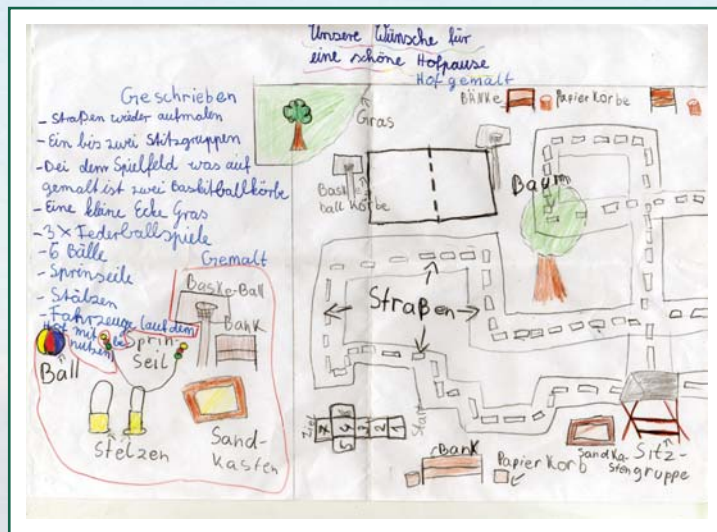 Unsere Wünsche für
eine schöne Hofpause
Hof gemält
Geschrieben
- Straßen wieder aufmalen
- Ein bis zwei Stitzgruppen
- Dei dem Spielfeld was auf
gemalt ist zwei Baskitballkörbe
- Eine kleine Ecke Gras
- 3 x Federballspiele
- 6 Bälle
- Sprinseile
- Stälzen
- Fahrzeuge (auf dem
Hof mit be
nutzen)
Gemalt
Baske-Ball
Bank
Ball
Sprin-
Seil
Stelzen
Sand-
kasten
Gras
BÄNKe
Papier Körbe
Bask
ball Körbe
Baum
Straßen
Ziel
7
6
5
4
3
2
1
Start
Bank
Papier Korb
Sandka-
sten
Sitz-
gruppe